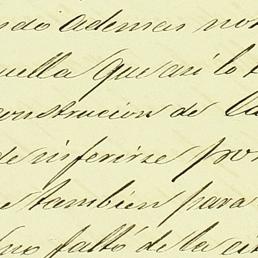 ndo ademas no
uella que asi lo
construccion de la
de inferirse por
e tambien para
no faltó de la ci